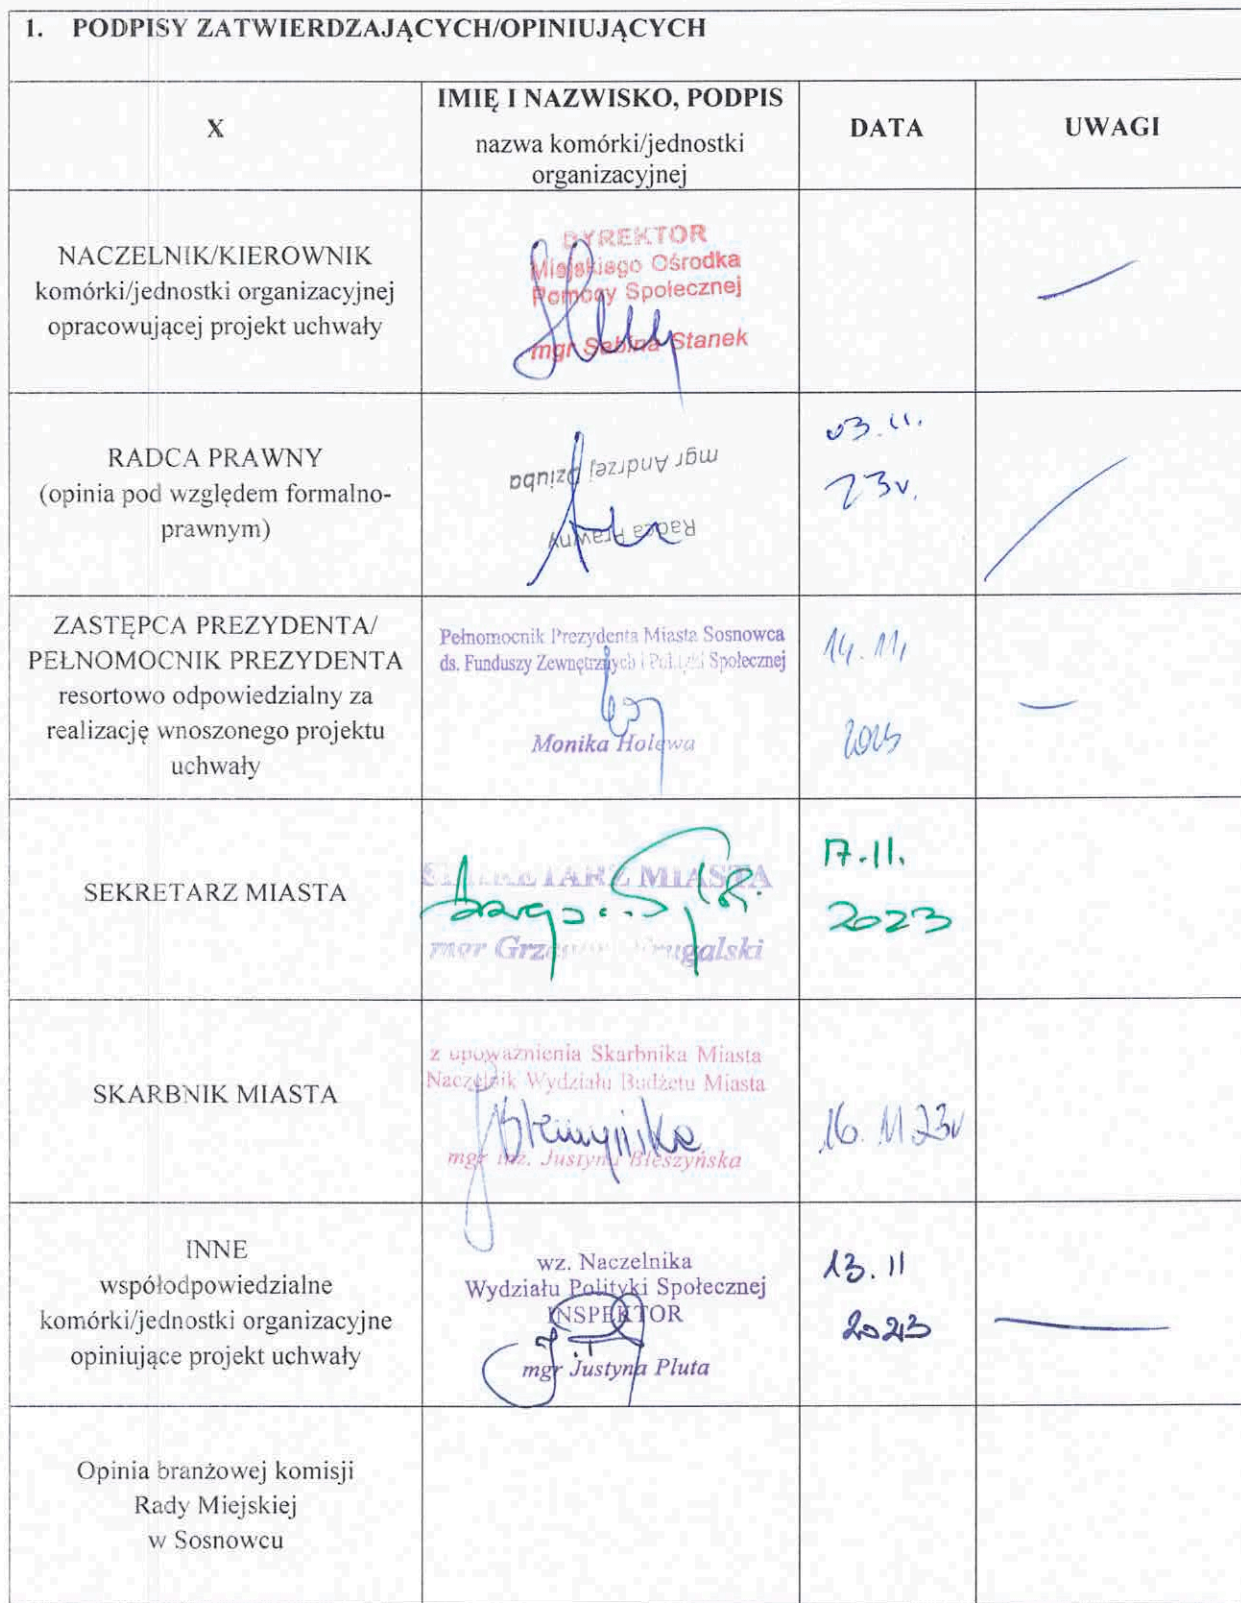 1. PODPISY ZATWIERDZAJĄCYCH/OPINIUJĄCYCH
X
IMIĘ I NAZWISKO, PODPIS
nazwa komórki/jednostki
organizacyjnej
DATA
UWAGI
NACZELNIK/KIEROWNIK
komórki/jednostki organizacyjnej
opracowującej projekt uchwały
DYREKTOR
Miejskiego Ośrodka
Pomocy Społecznej
mgr Sabina Stanek
RADCA PRAWNY
(opinia pod względem formalno-
prawnym)
mgr Andrzej Dziuba
Radca Prawny
03.11.
23r.
ZASTĘPCA PREZYDENTA/
PEŁNOMOCNIK PREZYDENTA
resortowo odpowiedzialny za
realizację wnoszonego projektu
uchwały
Pełnomocnik Prezydenta Miasta Sosnowca
ds. Funduszy Zewnętrznych i Polityki Społecznej
Monika Holewa
14.11,
2023
SEKRETARZ MIASTA
SEKRETARZ MIASTA
mgr Grz
galski
17.11.
2023
SKARBNIK MIASTA
z upoważnienia Skarbnika Miasta
Naczelnik Wydziału Budżetu Miasta
mgr inż. Justyna Błeszyńska
16.11 23r
INNE
współodpowiedzialne
komórki/jednostki organizacyjne
opiniujące projekt uchwały
wz. Naczelnika
Wydziału Polityki Społecznej
INSPEKTOR
mgr Justyna Pluta
13.11
2023
Opinia branżowej komisji
Rady Miejskiej
w Sosnowcu